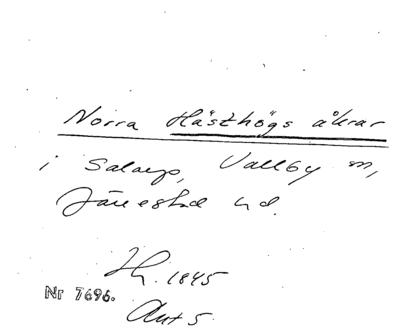 Norra Hästhögs åkrar
i Salarp, Vallby sn,
Järrestad hd.
Ih. 1845
Nr 7696.
Akt 5